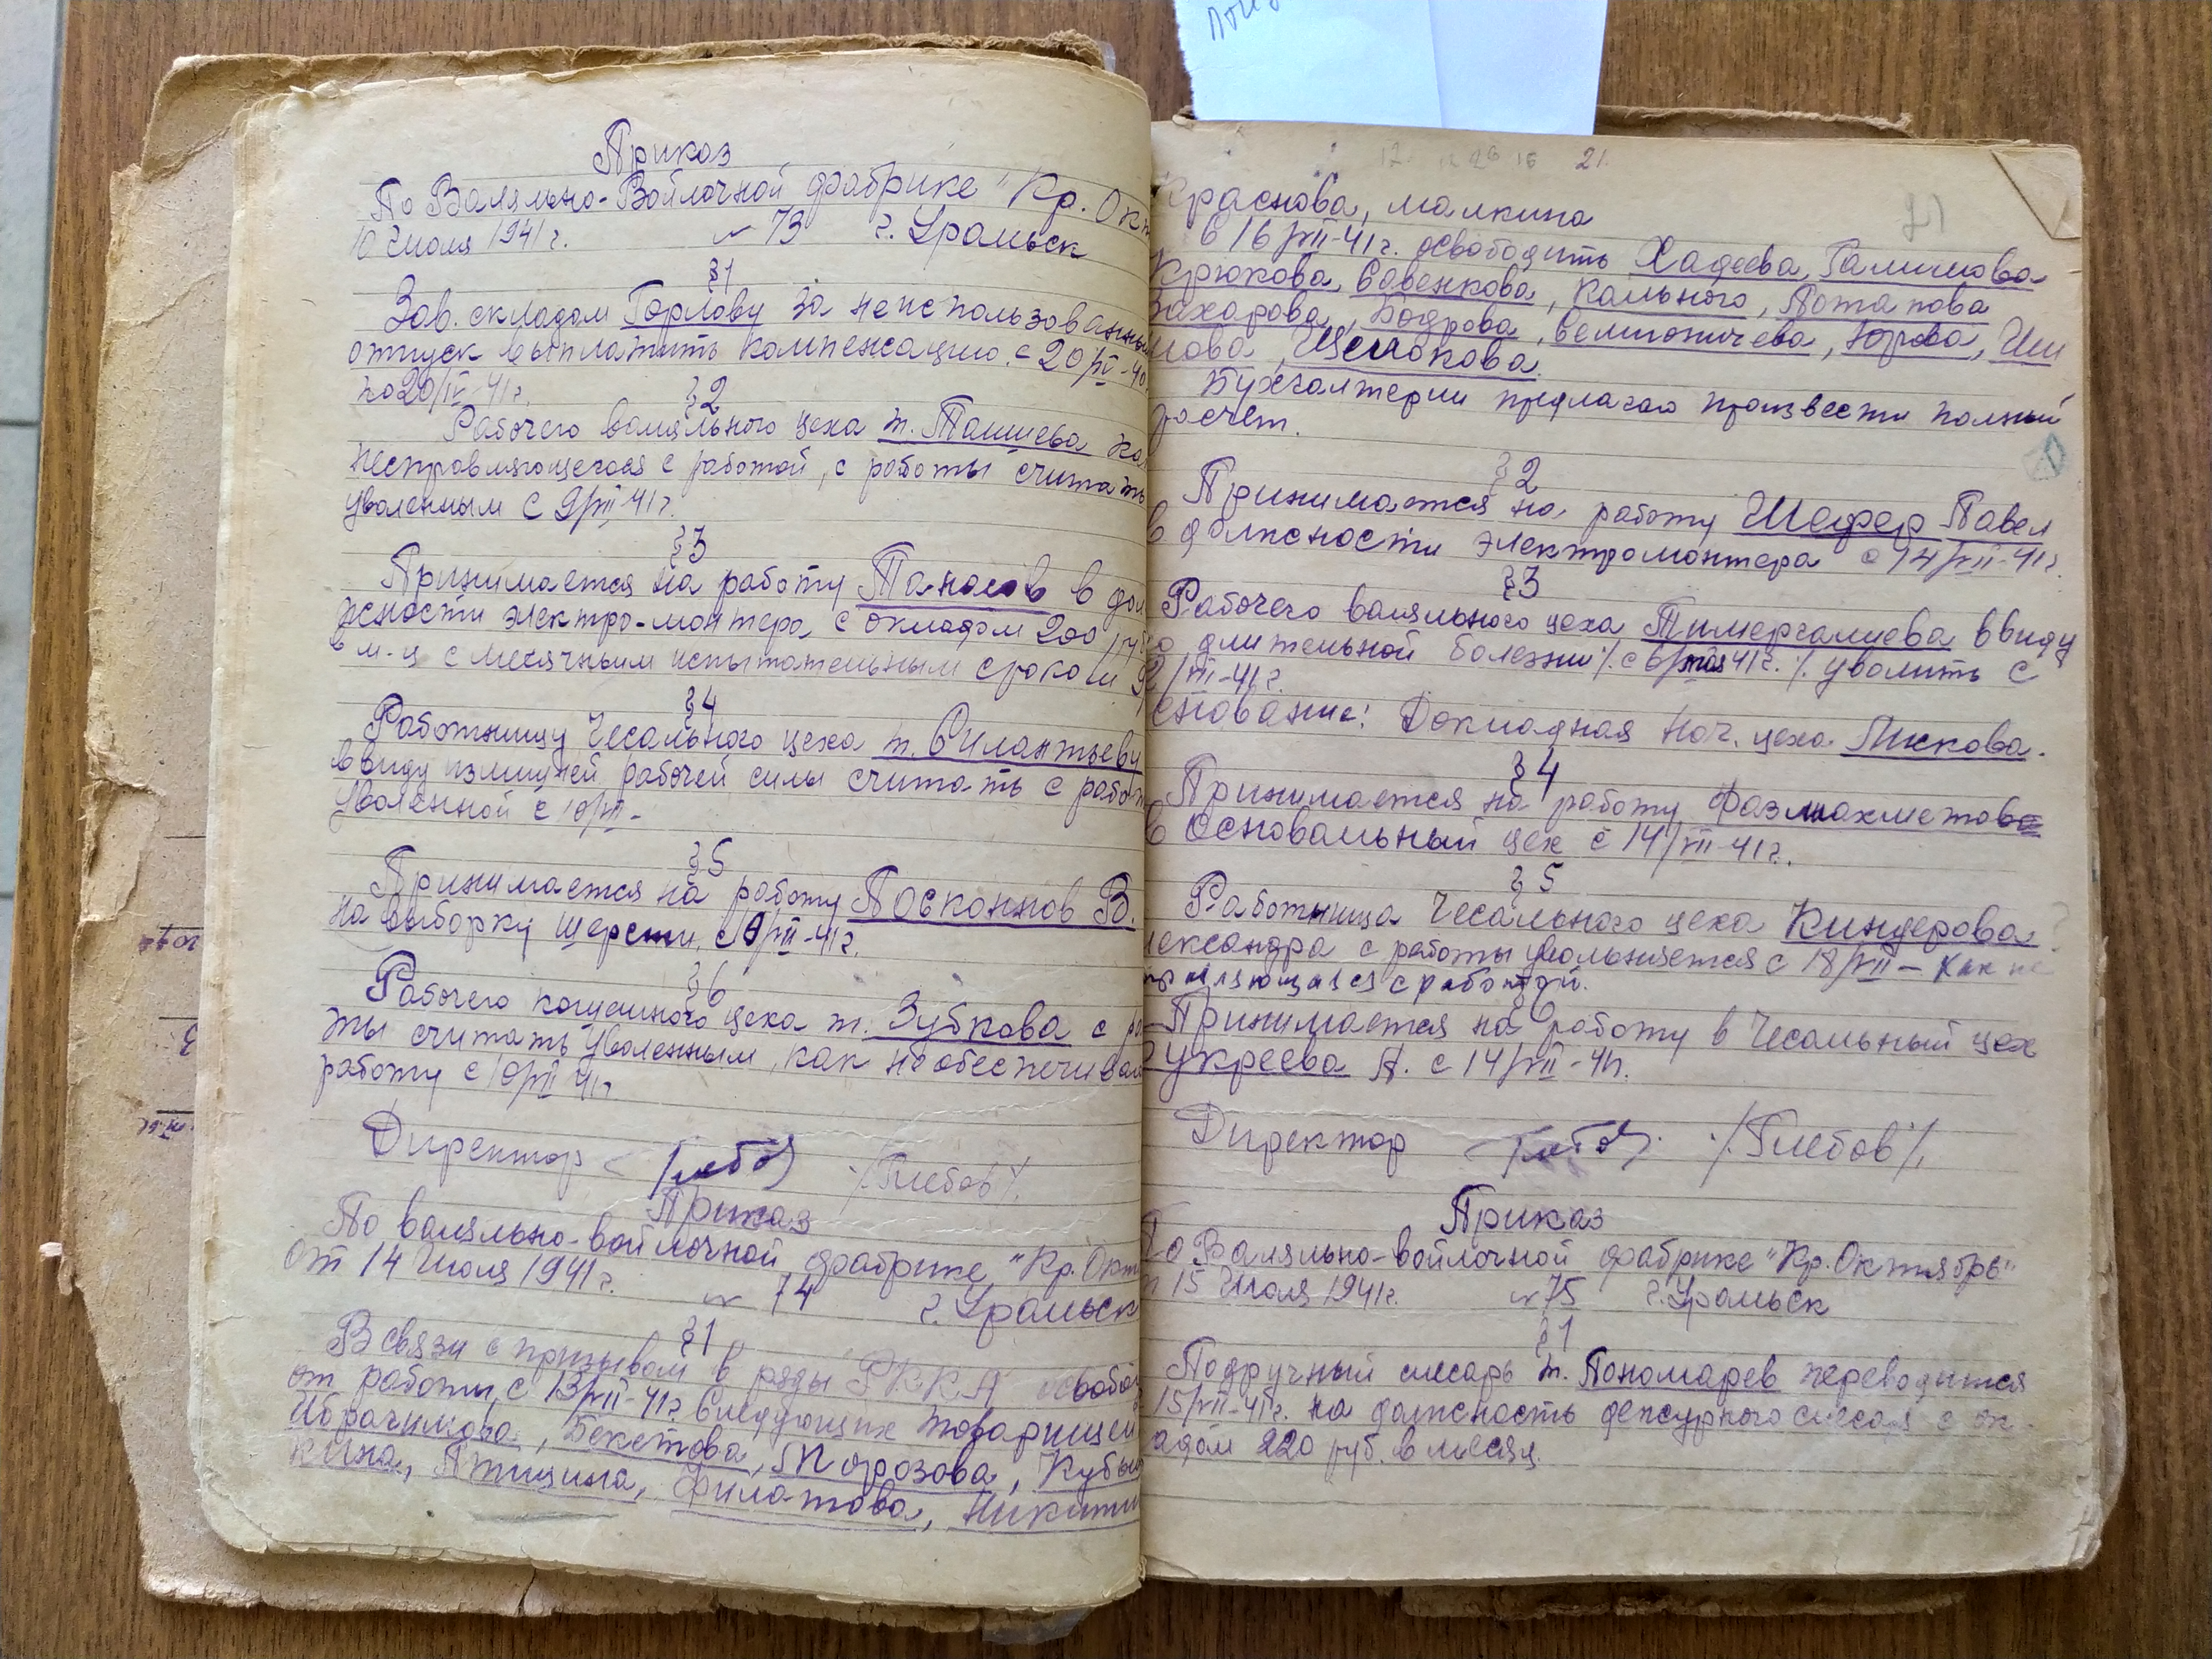 Приказ
По Валяльно-Войлочной фабрике "Кр. Ок
10 Июля 1941 г. № 73 г. Уральск
§1
Зав. складом Горлову за неиспользованный
отпуск выплатить компенсацию. с 20/IV-40
по 20/IV-41 г.
§2
Рабочего валяльного цеха т. Ташиева ка
несправляющегося с работой, с работы считать
уволенным с 9/VII-41 г.
§3
Принимается на работу Панасов в дол
жности электро-монтера с окладом 200 руб
в м-ц с месячным испытательным сроком
§4
Работницу Чесального цеха т. Силантьеву
ввиду излишней рабочей силы считать с работ
уволенной с 10/VII-
§5
Принимается на работу Посконнов В.
на выборку шерсти с 9/VII-41 г.
§6
Рабочего кошемного цеха т. Зубкова с ра
ты считать уволенным, как необеспечивал
работу с 10/VII 41 г.
Директор /Глебов/.
Приказ
По валяльно-войлочной фабрике "Кр. Окт
от 14 Июля 1941 г. № 74 г. Уральск
§1
В связи с призывом в ряды Р.К.К.А освобод
от работы с 13/VII-41 г. следующих товарищей
Ибрагимова, Бекетова, Морозова, Кубы
кина, Птицина, Филатова, Никити
21.
Краснова, малкина
с 16/VII-41 г. освободить Хадеева, Галичкова
Крюкова, Савенкова, Кального, Потапова
Захарова, Бодрова, Велигоничева, Юрова, Ши
лова, Щелокова.
Бухгалтерии предлагаю произвести полный
расчет.
§2
Принимается на работу Шефер Павел
в должности электромонтера с 14/VII-41 г.
§3
Рабочего валяльного цеха Тимергалиева ввиду
длительной болезни /. с 6/мая 41 г. /. уволить с
/VII-41 г.
снование: Докладная Нач. цеха Лискова.
§4
Принимается на работу Фазлиахметова
в Основальный цех с 14/VII-41 г.
§5
Работница Чесального цеха Киндерова
лександра с работы увольняется с 18/VII- как не
справляющаяся с работой.
§6
Принимается на работу в Чесальный цех
укреева А. с 14/VII-41 г.
Директор /.Глебов/.
Приказ
По Валяльно-войлочной фабрике "Кр. Октябрь"
т 15 Июля 1941 г. № 75 г. Уральск
§1
Подручный слесарь т. Пономарев переводится
15/VII-41 г. на должность дежурного слесаря с ок-
адом 220 руб. в месяц.